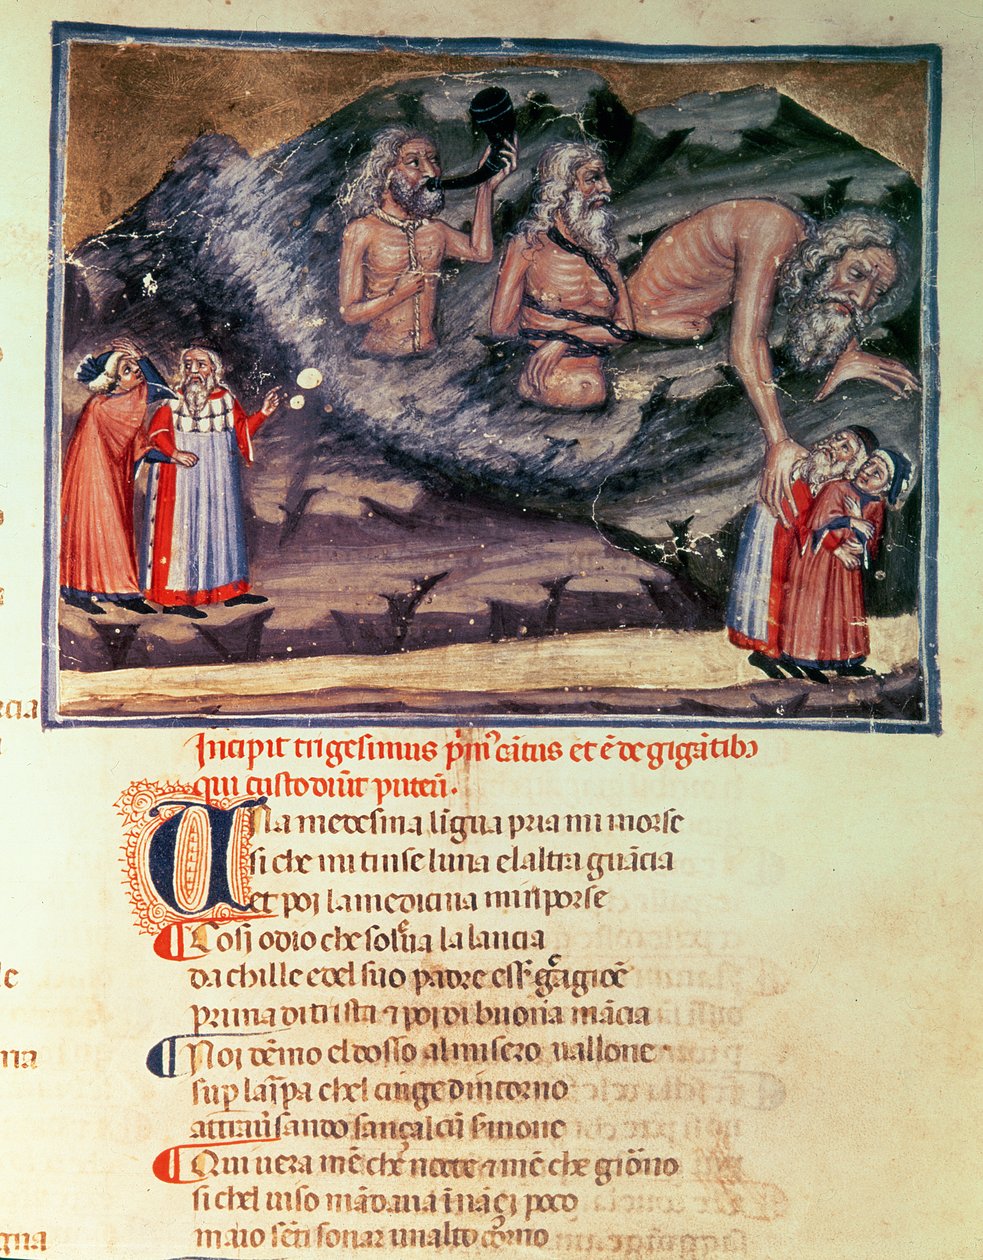 Incipit trigesimus p̄m᷒ cātus et ē de gigātibꝰ
qui custodiūt puteū.
Una medesma līgua pria mi morse
si che mi tinse luna elaltra guācia
et poi la medicina mi riporse
Cosi odio che soleua la lancia
dachille edel suo padre esser cagiōe
prima di trista ⁊ poi di buona mācia
Noi dēmo eldosso almisero uallone
sup̱ la ripa chel cinge dintorno
attrauersando sançalcū sermone
Qui uera mē che nocte ⁊ mē che giorno
si chel uiso mādaua īnāçi poco
ma io sēti sonar unalto corno